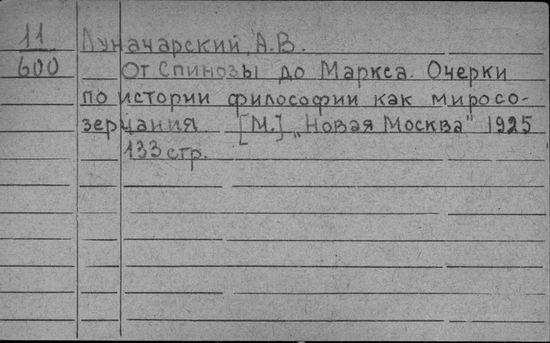 11
600
Луначарский, А.В.
От Спинозы до Маркса. Очерки
по истории философии как миросо-
зерцания [М.] „Новая Москва" 1925
133 стр.